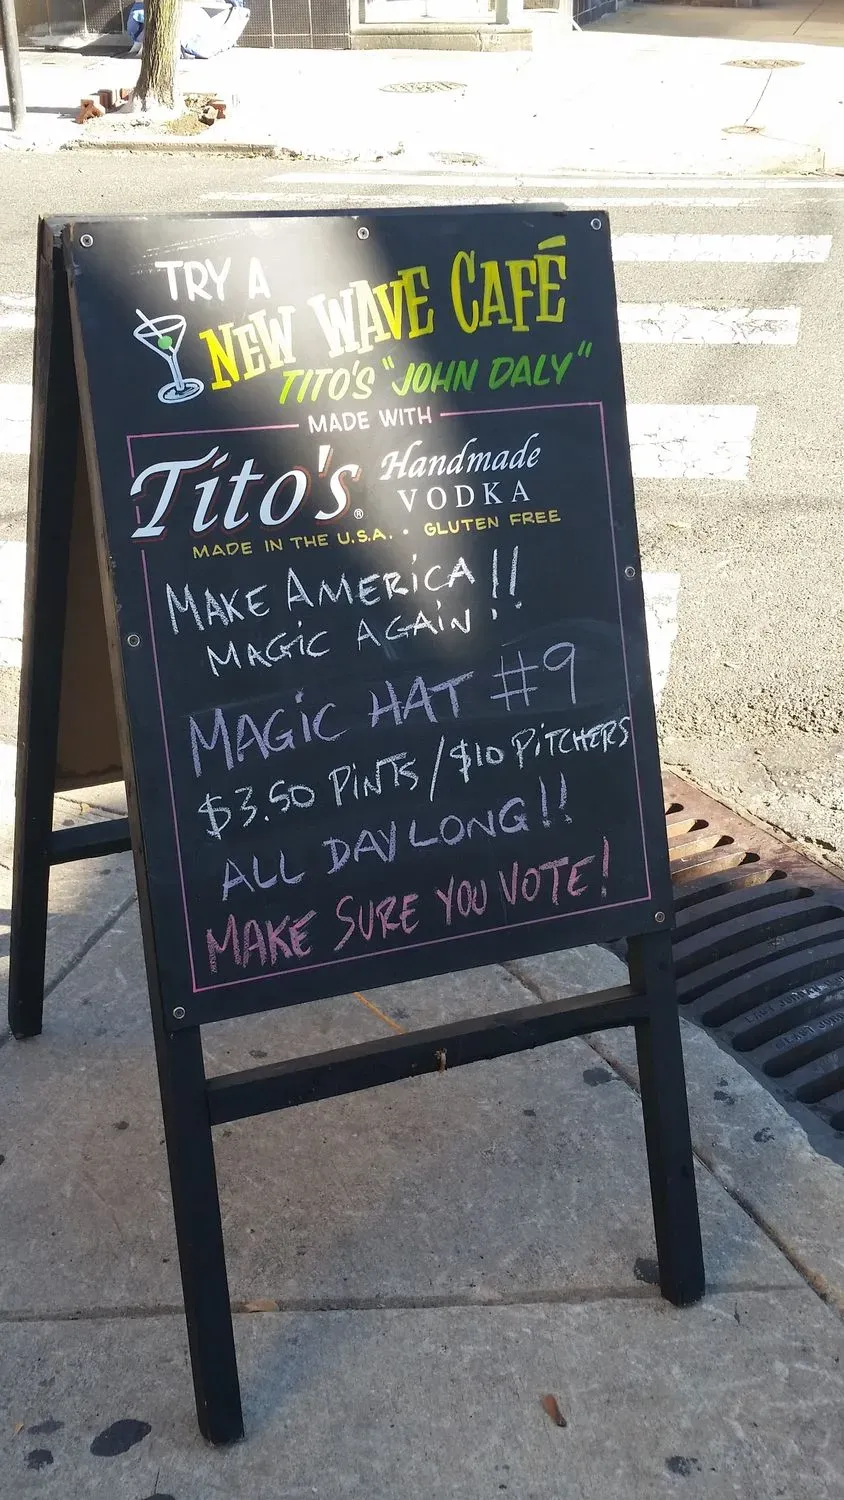 TRY A
NEW WAVE CAFÉ
TITO'S "JOHN DALY"
MADE WITH
Tito's® Handmade
VODKA
MADE IN THE U.S.A. · GLUTEN FREE
MAKE AMERICA!!
MAGIC AGAIN
MAGIC HAT #9
$3.50 PINTS / $10 PITCHERS
ALL DAY LONG!!
MAKE SURE YOU VOTE!